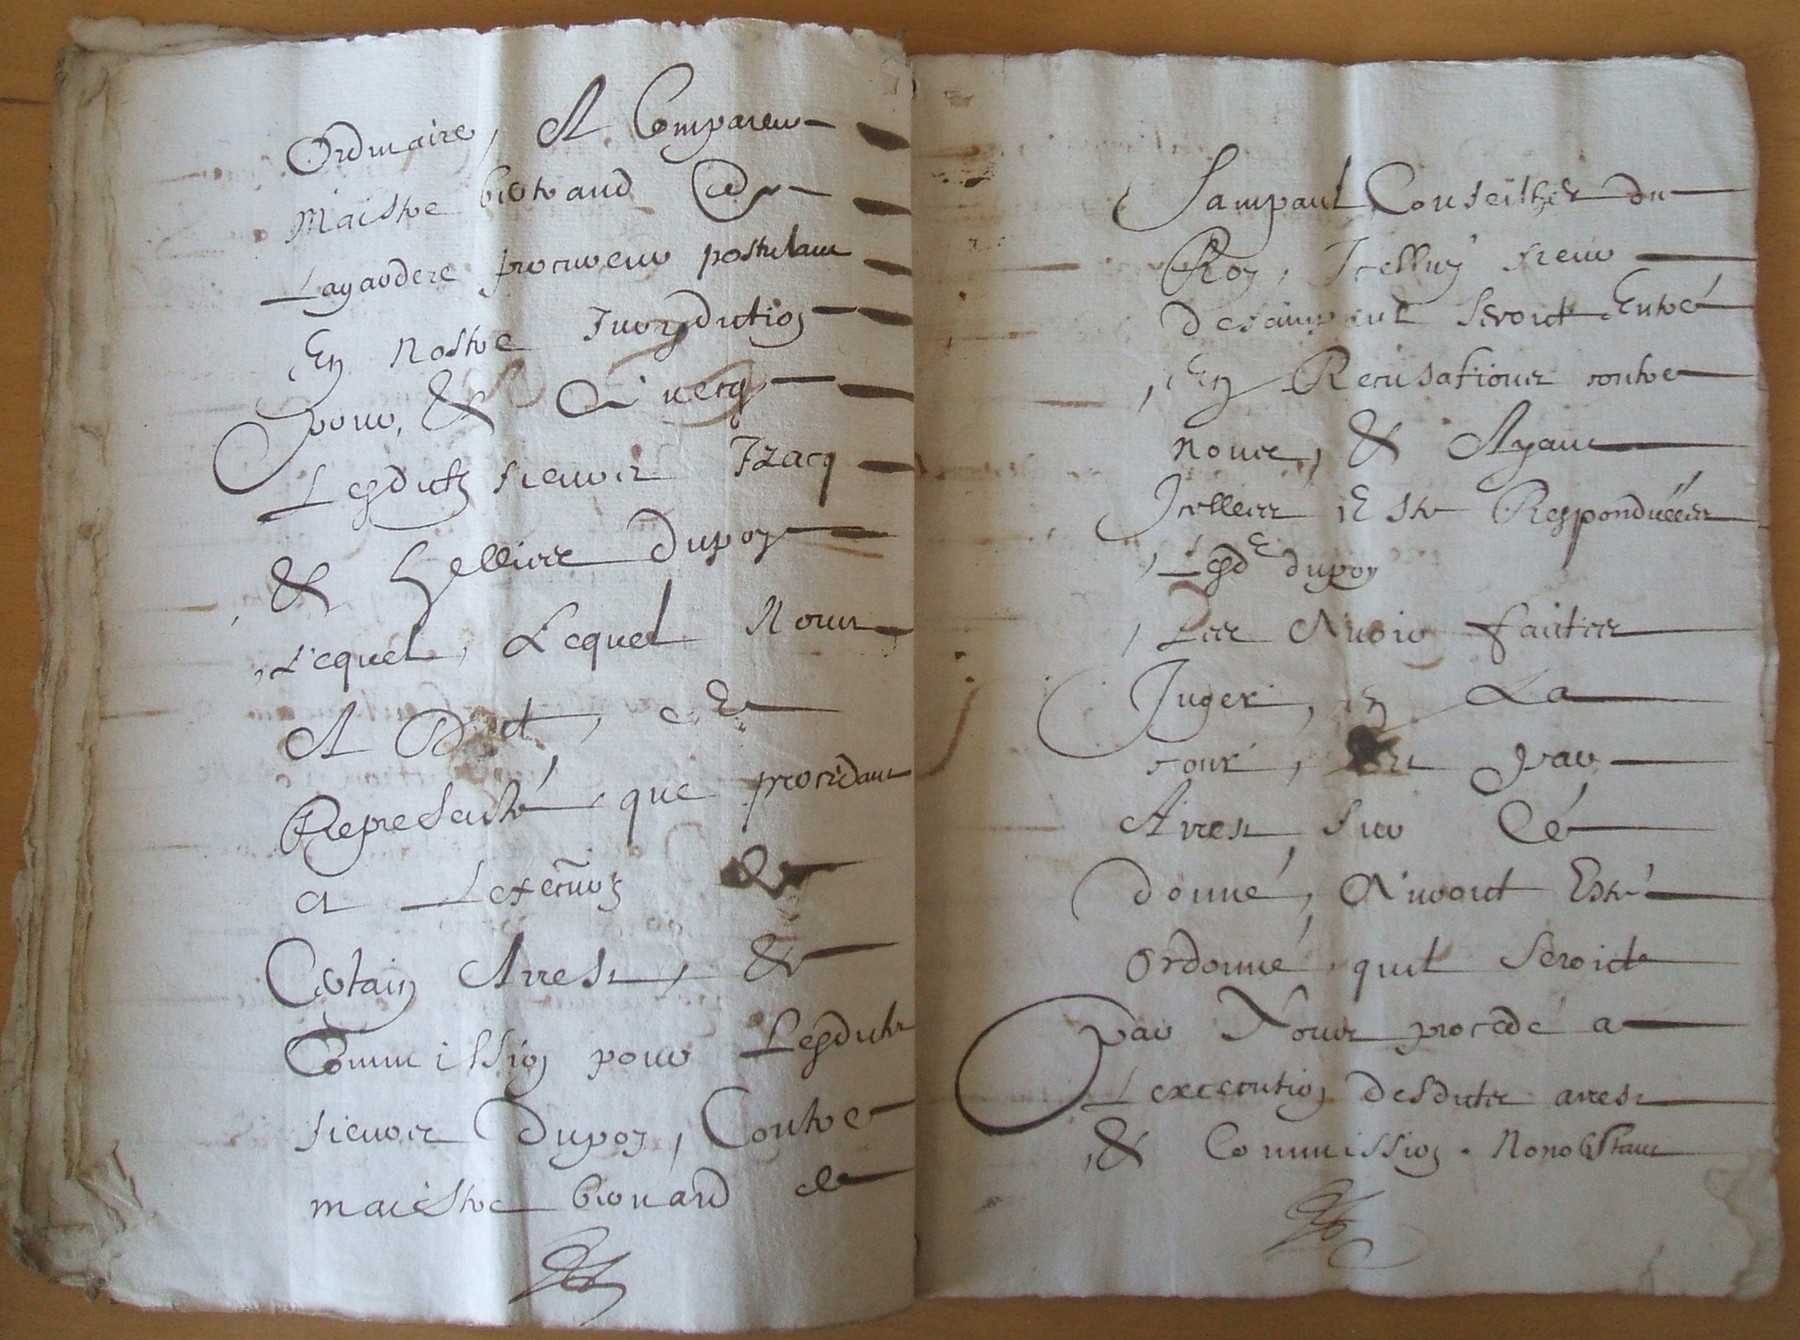 Ordinaire, A Compareu
Maistre bertrand de
Lagardere procureur postulant
En Nostre Jurisdiction
pour, & Avecq
Lesdicts sieurs Izacq
& hellies Dupoy
Lequel, Lequel Nous
A Dict, et
Representé, que procedant
a Lexecution de
Certain Arrest, &
Commission pour Lesdicts
sieurs Dupoy, Contre
maistre bernard de
Sampaul Conseilher du
Roy, Icelluy sieur
desainpaul seroict Entré
En Recusations contre
nous, & Ayant
Icelles Esté Respondüees
Lesd dupoy
Les Avoir faictes
Juger, en La
cour, par
Arrest sur Cé
donné, Avoict Esté
ordonné, quil seroict
par Nous procedé a
Lexecution desdicts arrest
& Commission. Nonobstant